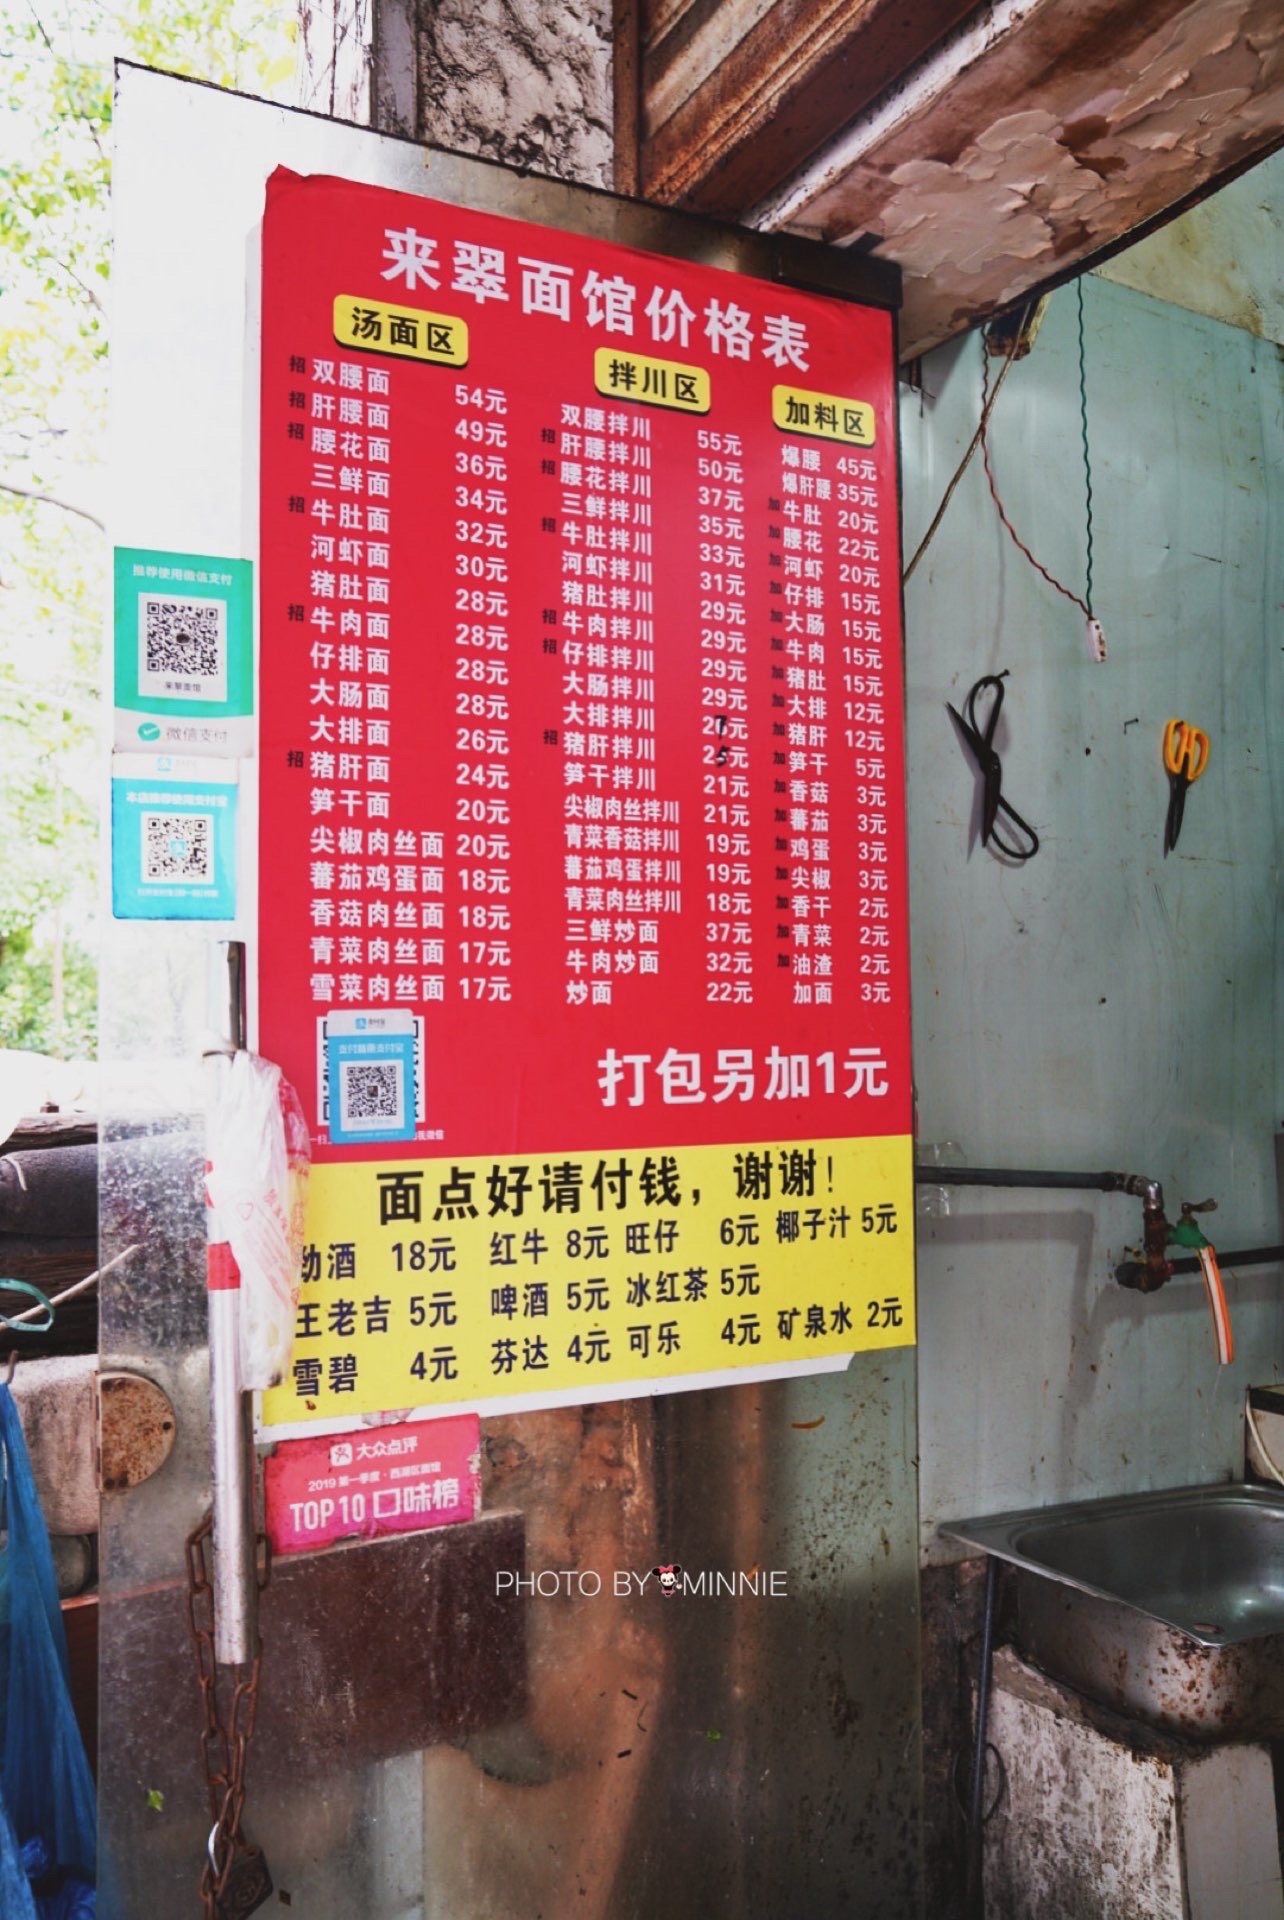 来翠面馆价格表
汤面区
招 双腰面 54元
招 肝腰面 49元
招 腰花面 36元
三鲜面 34元
招 牛肚面 32元
河虾面 30元
猪肚面 28元
招 牛肉面 28元
仔排面 28元
大肠面 28元
大排面 26元
招 猪肝面 24元
笋干面 20元
尖椒肉丝面 20元
蕃茄鸡蛋面 18元
香菇肉丝面 18元
青菜肉丝面 17元
雪菜肉丝面 17元
拌川区
双腰拌川 55元
招 肝腰拌川 50元
招 腰花拌川 37元
三鲜拌川 35元
招 牛肚拌川 33元
河虾拌川 31元
猪肚拌川 29元
招 牛肉拌川 29元
招 仔排拌川 29元
大肠拌川 29元
大排拌川 27元
招 猪肝拌川 25元
笋干拌川 21元
尖椒肉丝拌川 21元
青菜香菇拌川 19元
蕃茄鸡蛋拌川 19元
青菜肉丝拌川 18元
三鲜炒面 37元
牛肉炒面 32元
炒面 22元
加料区
爆腰 45元
爆肝腰 35元
加 牛肚 20元
加 腰花 22元
加 河虾 20元
加 仔排 15元
加 大肠 15元
加 牛肉 15元
加 猪肚 15元
加 大排 12元
加 猪肝 12元
加 笋干 5元
加 香菇 3元
加 蕃茄 3元
加 鸡蛋 3元
加 尖椒 3元
加 香干 2元
加 青菜 2元
加 油渣 2元
加面 3元
打包另加1元
面点好请付钱，谢谢！
劲酒 18元 红牛 8元 旺仔 6元 椰子汁 5元
王老吉 5元 啤酒 5元 冰红茶 5元
雪碧 4元 芬达 4元 可乐 4元 矿泉水 2元
推荐使用微信支付
来翠面馆
微信支付
本店推荐使用支付宝
支付就用支付宝
大众点评
2019 第一季度·西湖区面馆
TOP 10 口味榜
PHOTO BY MINNIE